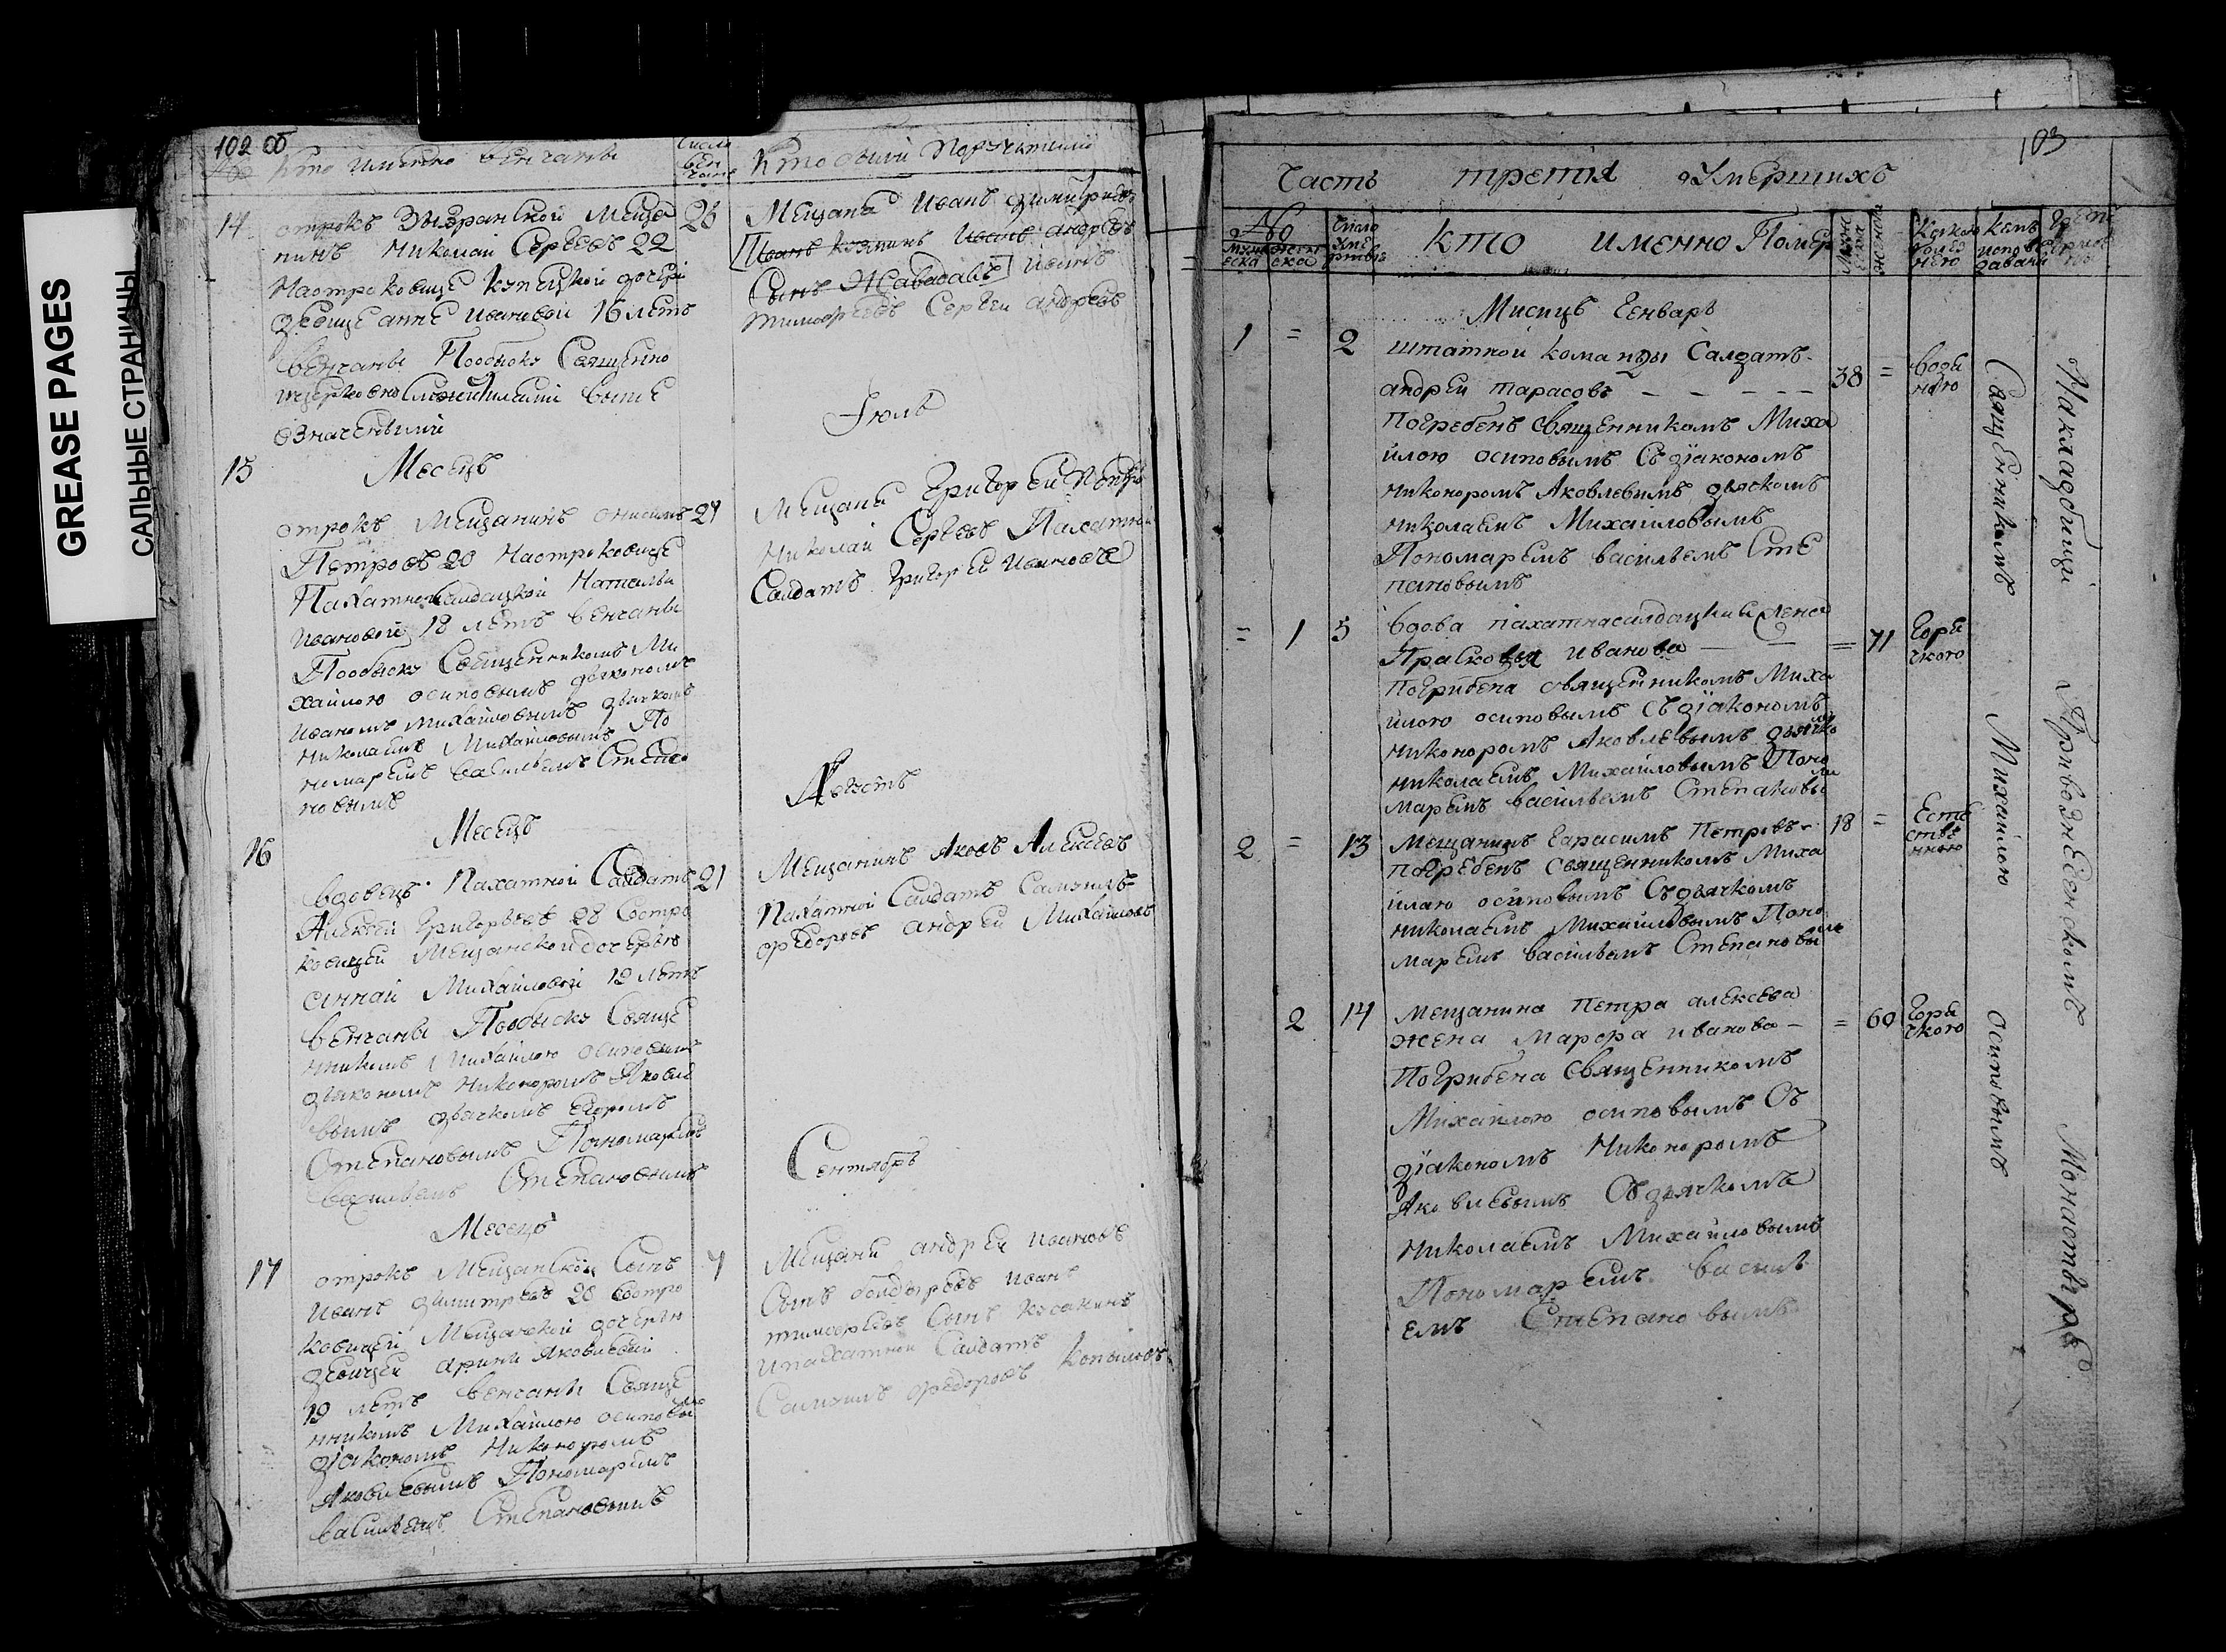 GREASE PAGES
САЛЬНЫЕ СТРАНИЦЫ
102 об
Кто именно венчаны
Число вен чаны
Кто были поручители
14
отрокъ Сызранской Меща
26
нинъ Николай Сергеевъ 22
На отроковице купецкой дочери
девице анне Ивановой 16 летъ
венчаны Пообыску Священно
церковно Служительми выше
означенными
Мещана Иванъ димитриевъ
Иванъ Иванъ андреевъ
Сынъ Иванъ
тимофеевъ Сергеи андреевъ
15
Месецъ
Июль
отрокъ Мещанинъ онисимъ
27
Петровъ 20 На отроковице
Пахатной Салдацкой Натальи
Ивановой 18 летъ венчаны
Пообыску Священникомъ Ми
хайлою осиповымъ дьякономъ
Иваномъ Михайловымъ дьячкомъ
Николаемъ Михайловымъ По
номаремъ Васильемъ Степа
новымъ
Мещани Григореи Петро
Николай Сергеевъ Пахатной
Салдатъ Григореи Ивановъ
16
Месецъ
Августъ
вдовецъ Пахатной Салдатъ
21
Алексей Григорьевъ 28 Сотро
ковицей Мещанской дочерью
анной Михайловой 19 летъ
венчаны Пообыску Свяще
нникомъ Михайлою осиповымъ
дьякономъ Никоноромъ Яковле
вымъ дьячкомъ Егоромъ
Степановымъ Пономаремъ
Васильемъ Степановымъ
Мещанинъ Яковъ Алексеевъ
Пахатной Салдатъ Самоилъ
федоровъ андреи Михайловъ
17
Месецъ
Сентябрь
отрокъ Мещанской Сынъ
7
Иванъ димитревъ 20 Сотро
ковицей Мещанской дочерью
девицей ариной Яковлевой
19 летъ венчаны Свяще
нникомъ Михайлою осиповы
дiакономъ Никоноромъ
Яковлевымъ Пономаремъ
Васильемъ Степановымъ
Мещани андреи Ивановъ
Сынъ Иванъ
тимофеевъ Сынъ
и пахатной Салдатъ
Самоилъ федоровъ Копыловъ
103
Часть третiя о Умершихъ
№
мужеска
женска
Число умертвiя
Кто именно Помер
Мужеска
женска
Какою болезнею
Кемъ исповеданы
Где погребены
Мисицъ Генварь
1 = 2
штатной команды Салдатъ
38 =
водяною
андреи тарасовъ
Погребенъ Священникомъ Миха
йлою осиповымъ Съ дiакономъ
Никоноромъ Яковлевымъ дьячкомъ
Николаемъ Михайловымъ
Пономаремъ Васильемъ Сте
пановымъ
= 1 5
вдова пахатнасалдацкая жена
Прасковья Иванова
= 71
Горячкою
погрибена священникомъ Миха
йлою осиповымъ Съ дiакономъ
Никоноромъ Яковлевымъ дьячко
Николаемъ Михайловымъ Поно
маремъ Васильемъ Степановы
2 = 13
Мещанинъ Гарасимъ Петровъ
18 =
Естественною
погребенъ Священникомъ Миха
йлаю осиповымъ Съ дьячкомъ
Николаемъ Михайловымъ Поно
маремъ Васильемъ Степановы
2 14
Мещанина Петра алексеева
жена Марфа Иванова
= 60
Горячкою
Погрибена Священникомъ
Михайлою осиповымъ Съ
дiакономъ Никоноромъ
Яковлевымъ Съ дьячкомъ
Николаемъ Михайловымъ
Пономаремъ Василь
емъ Степановымъ
Священникомъ Михайлою Осиповымъ
На кладбищи При вознесенскомъ Монастыре